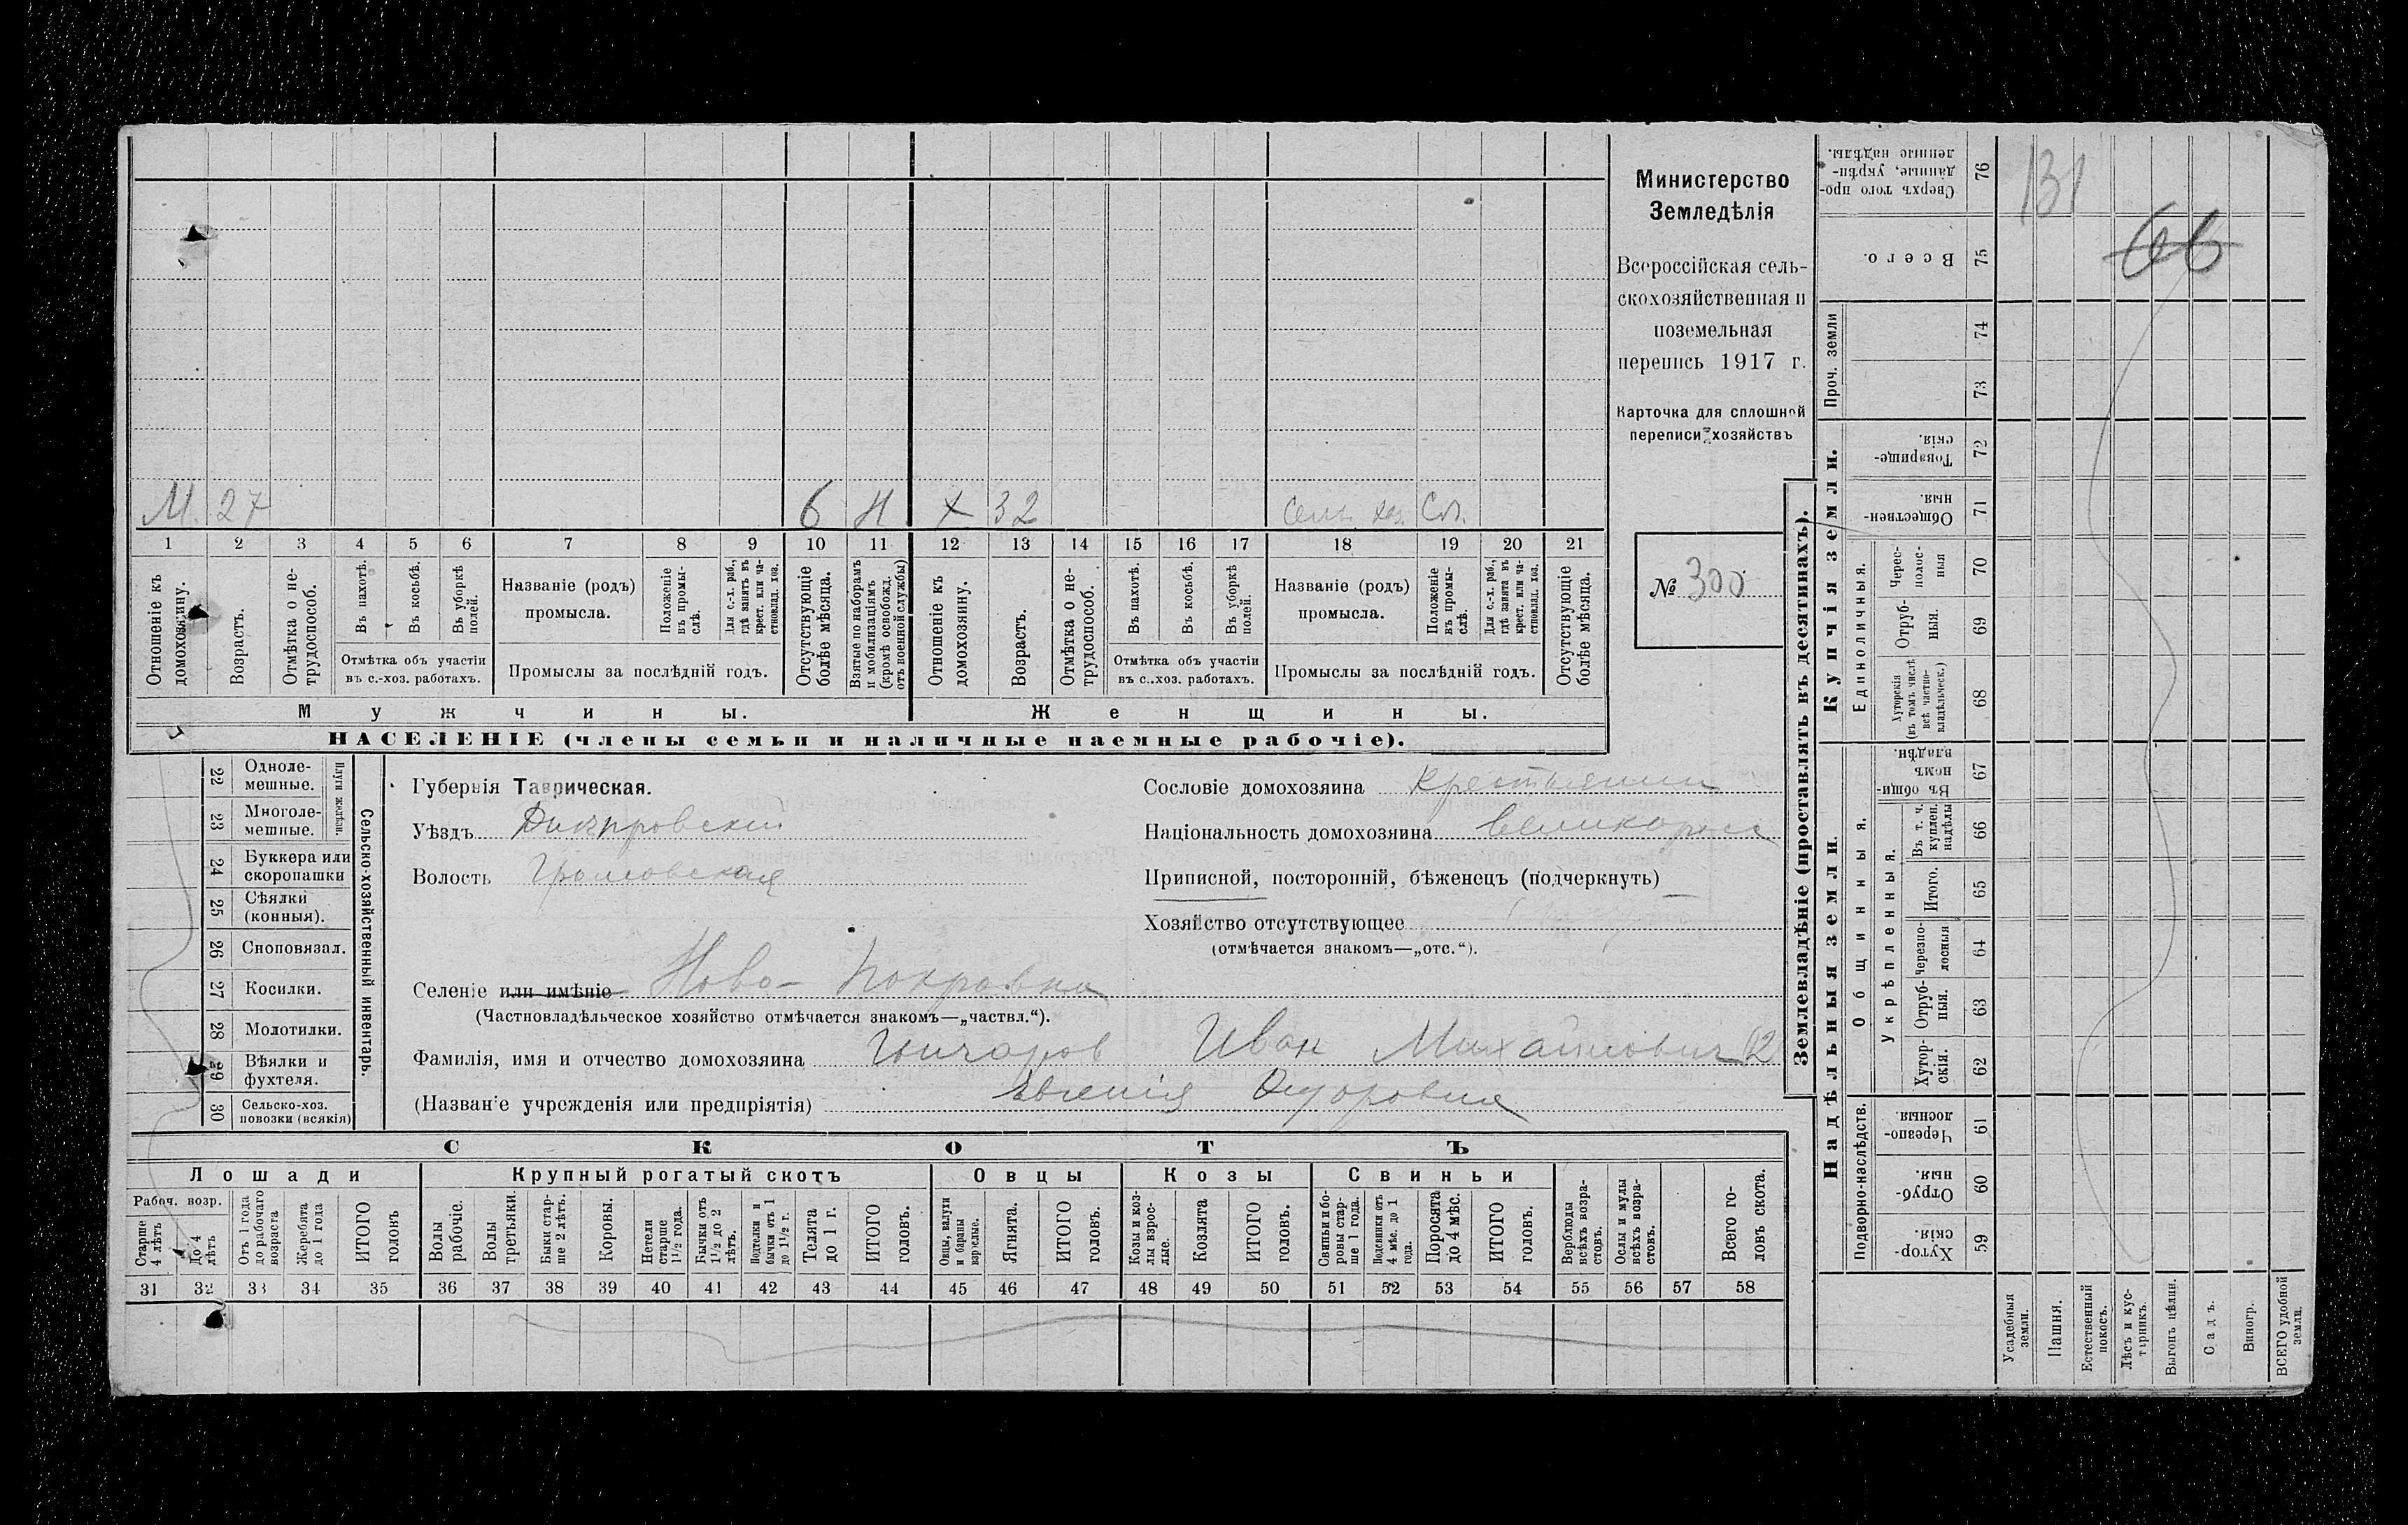 М 27 6 Н Х 32 Сельс. хоз. Сл.
1 2 3 4 5 6 7 8 9 10 11 12 13 14 15 16 17 18 19 20 21
Отношеніе къ домохозяину.
Возрастъ.
Отмѣтка о нетрудоспособ.
Въ пахотѣ.
Въ косьбѣ.
Въ уборкѣ полей.
Отмѣтка объ участіи
въ с.-хоз. работахъ.
Названіе (родъ)
промысла.
Положеніе въ промыслѣ.
Для с.-х. раб., гдѣ занятъ въ крест. или частновлад. хоз.
Промыслы за послѣдній годъ.
Отсутствующіе болѣе мѣсяца.
Взятые по наборамъ и мобилизаціямъ (кромѣ освобожд. отъ военной службы)
Отношеніе къ домохозяину.
Возрастъ.
Отмѣтка о нетрудоспособ.
Въ пахотѣ.
Въ косьбѣ.
Въ уборкѣ полей.
Отмѣтка объ участіи
въ с.-хоз. работахъ.
Названіе (родъ)
промысла.
Положеніе въ промыслѣ.
Для с.-х. раб., гдѣ занята въ крест. или частновлад. хоз.
Промыслы за послѣдній годъ.
Отсутствующіе болѣе мѣсяца.
Мужчины. Женщины.
НАСЕЛЕНІЕ (члены семьи и наличные наемные рабочіе).
Министерство
Земледѣлія
Всероссійская сель-
скохозяйственная и
поземельная
перепись 1917 г.
Карточка для сплошной
переписи хозяйствъ
№ 300
Сельско-хозяйственный инвентарь.
Плуги желѣзн.
22 Одноле-
мешные.
23 Многоле-
мешные.
24 Буккера или
скоропашки
25 Сѣялки
(конныя).
26 Сноповязал.
27 Косилки.
28 Молотилки.
29 Вѣялки и
фухтеля.
30 Сельско-хоз.
повозки (всякія)
Губернія Таврическая.
Уѣздъ Днѣпровскій
Волость Громовская
Селеніе или имѣніе Ново-Покровка
(Частновладѣльческое хозяйство отмѣчается знакомъ—„частвл.“).
Фамилія, имя и отчество домохозяина Иван Михайлович
(Названіе учрежденія или предпріятія) Евгенія
Сословіе домохозяина крестьянин
Національность домохозяина великоросс
Приписной, посторонній, бѣженецъ (подчеркнуть)
Хозяйство отсутствующее
(отмѣчается знакомъ—„отс.“).
СКОТЪ
Лошади Крупный рогатый скотъ Овцы Козы Свиньи
Рабоч. возр.
Старше 4 лѣтъ
До 4 лѣтъ
Отъ 1 года до рабочаго возраста
Жеребята до 1 года
ИТОГО головъ
Волы рабочіе.
Волы третьяки.
Быки старше 2 лѣтъ.
Коровы.
Нетели старше 1½ года.
Бычки отъ 1½ до 2 лѣтъ.
Подтелки и бычки отъ 1 до 1½ г.
Телята до 1 г.
ИТОГО головъ.
Овцы, валухи и бараны взрослые.
Ягнята.
ИТОГО головъ.
Козы и козлы взрослые.
Козлята
ИТОГО головъ.
Свиньи и боровы старше 1 года.
Подсвинки отъ 4 мѣс. до 1 года.
Поросята до 4 мѣс.
ИТОГО головъ.
Верблюды всѣхъ возрастовъ.
Ослы и мулы всѣхъ возрастовъ.
Всего головъ скота.
31 32 33 34 35 36 37 38 39 40 41 42 43 44 45 46 47 48 49 50 51 52 53 54 55 56 57 58
Землевладѣніе (проставлять въ десятинахъ).
Купчія земли.
Надѣльныя земли.
Сверхъ того проданные, укрѣпленные надѣлы. 76
Всего. 75
Проч. земли 74
73
Товарищескія. 72
Общественныя. 71
Единоличныя.
Чересполосныя 70
Отрубныя. 69
Хуторскія (въ томъ числѣ всѣ частновладѣльческ.) 68
Въ общинномъ владѣн. 67
Общинныя.
Укрѣпленныя.
Въ т. ч. куплен. надѣлы 66
Итого. 65
Черезполосныя 64
Отрубныя. 63
Хуторскія. 62
Подворно-наслѣдств.
Черезполосныя. 61
Отрубныя. 60
Хуторскія. 59
Усадебныя земли.
Пашня.
Естественный покосъ.
Лѣсъ и кустарникъ.
Выгонъ цѣлин.
Садъ.
Виногр.
ВСЕГО удобной земли.
131